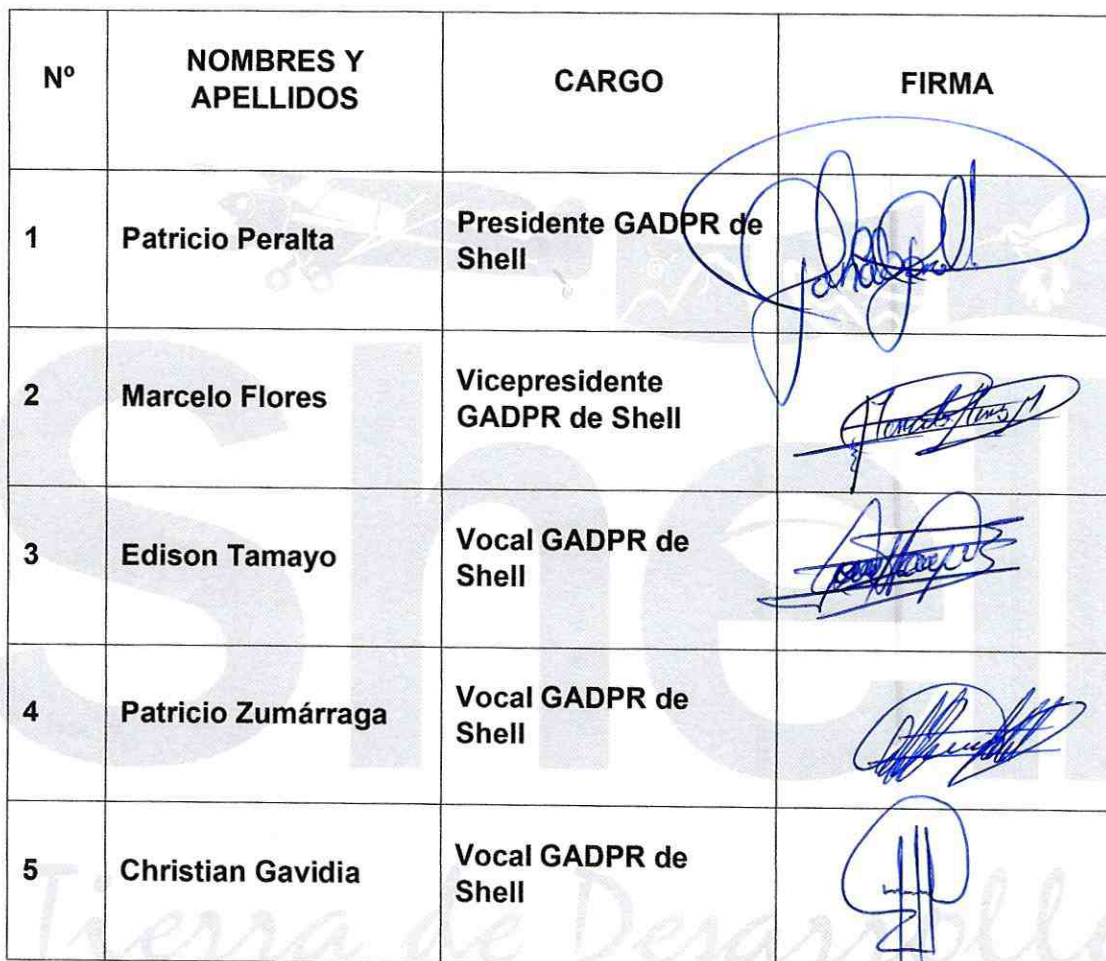 Nº
NOMBRES Y
APELLIDOS
CARGO
FIRMA
1
Patricio Peralta
Presidente GADPR de
Shell
2
Marcelo Flores
Vicepresidente
GADPR de Shell
3
Edison Tamayo
Vocal GADPR de
Shell
4
Patricio Zumárraga
Vocal GADPR de
Shell
5
Christian Gavidia
Vocal GADPR de
Shell
Shell
Tierra de Desarrollo